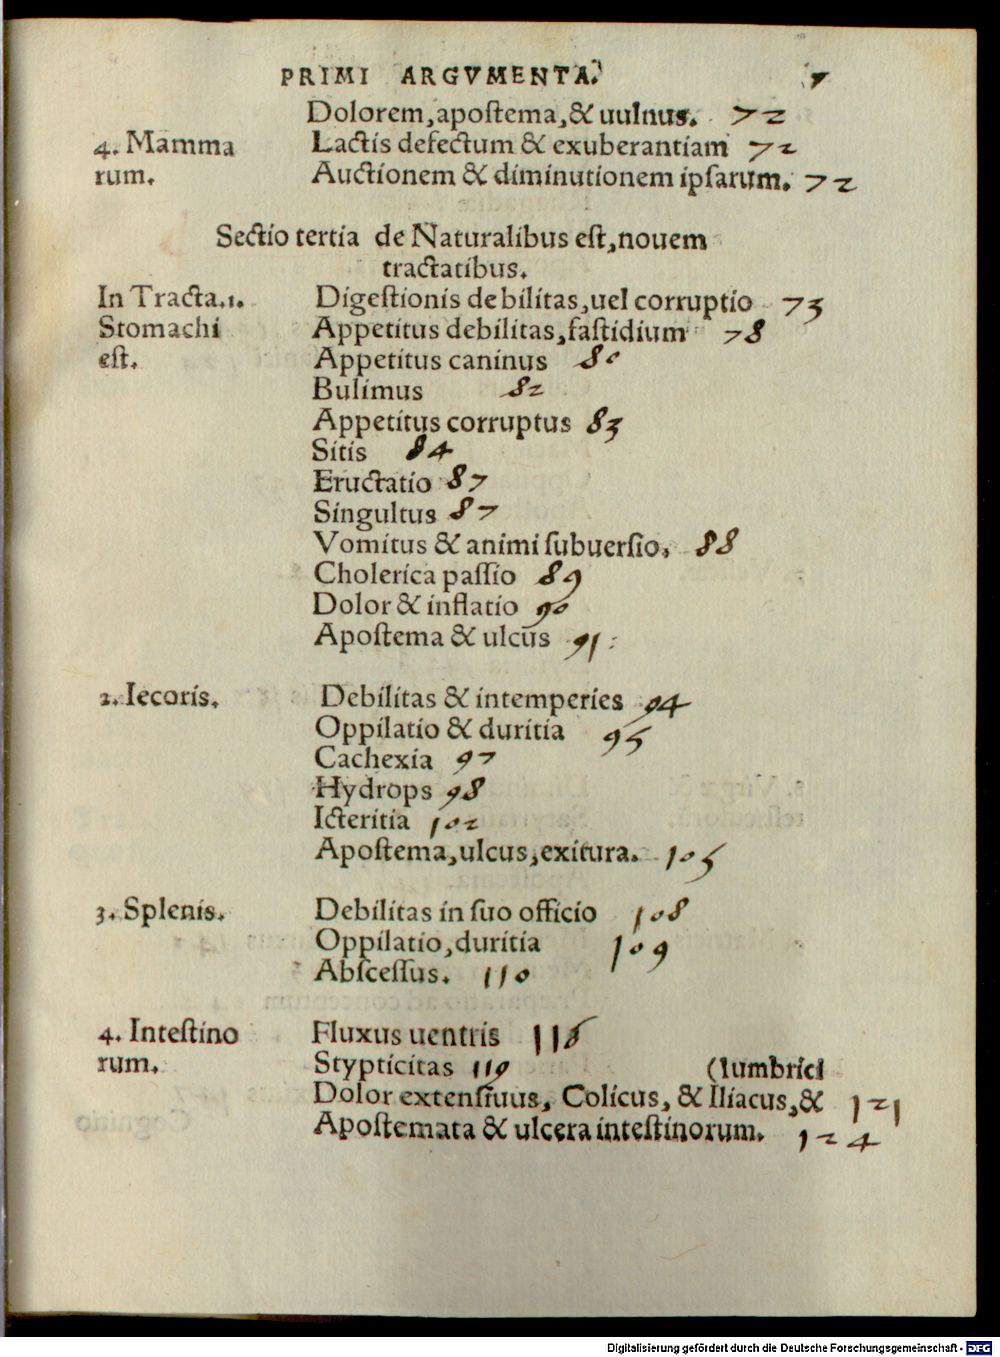 PRIMI ARGVMENTA. 7
Dolorem, apoſtema, & uulnus. 72
4. Mamma Lactis defectum & exuberantiam 72
rum. Auctionem & diminutionem ipſarum. 72
Sectio tertia de Naturalibus eſt, nouem
tractatibus.
In Tracta. 1. Digeſtionis debilitas, uel corruptio 73
Stomachi Appetitus debilitas, faſtidium 78
eſt. Appetitus caninus 80
Bulimus 82
Appetitus corruptus 83
Sitis 84
Eructatio 87
Singultus 87
Vomitus & animi ſubuerſio. 88
Cholerica paſſio 89
Dolor & inflatio 90
Apoſtema & ulcus 91
2. Iecoris. Debilitas & intemperies 94
Oppilatio & duritia 95
Cachexia 97
Hydrops 98
Icteritia 102
Apoſtema, ulcus, exitura. 105
3. Splenis. Debilitas in ſuo officio 108
Oppilatio, duritia 109
Abſceſſus. 110
4. Inteſtino Fluxus uentris 116
rum. Stypticitas 119 (lumbrici
Dolor extenſiuus, Colicus, & Iliacus, & 121
Apoſtemata & ulcera inteſtinorum. 124
Digitalisierung gefördert durch die Deutsche Forschungsgemeinschaft - DFG